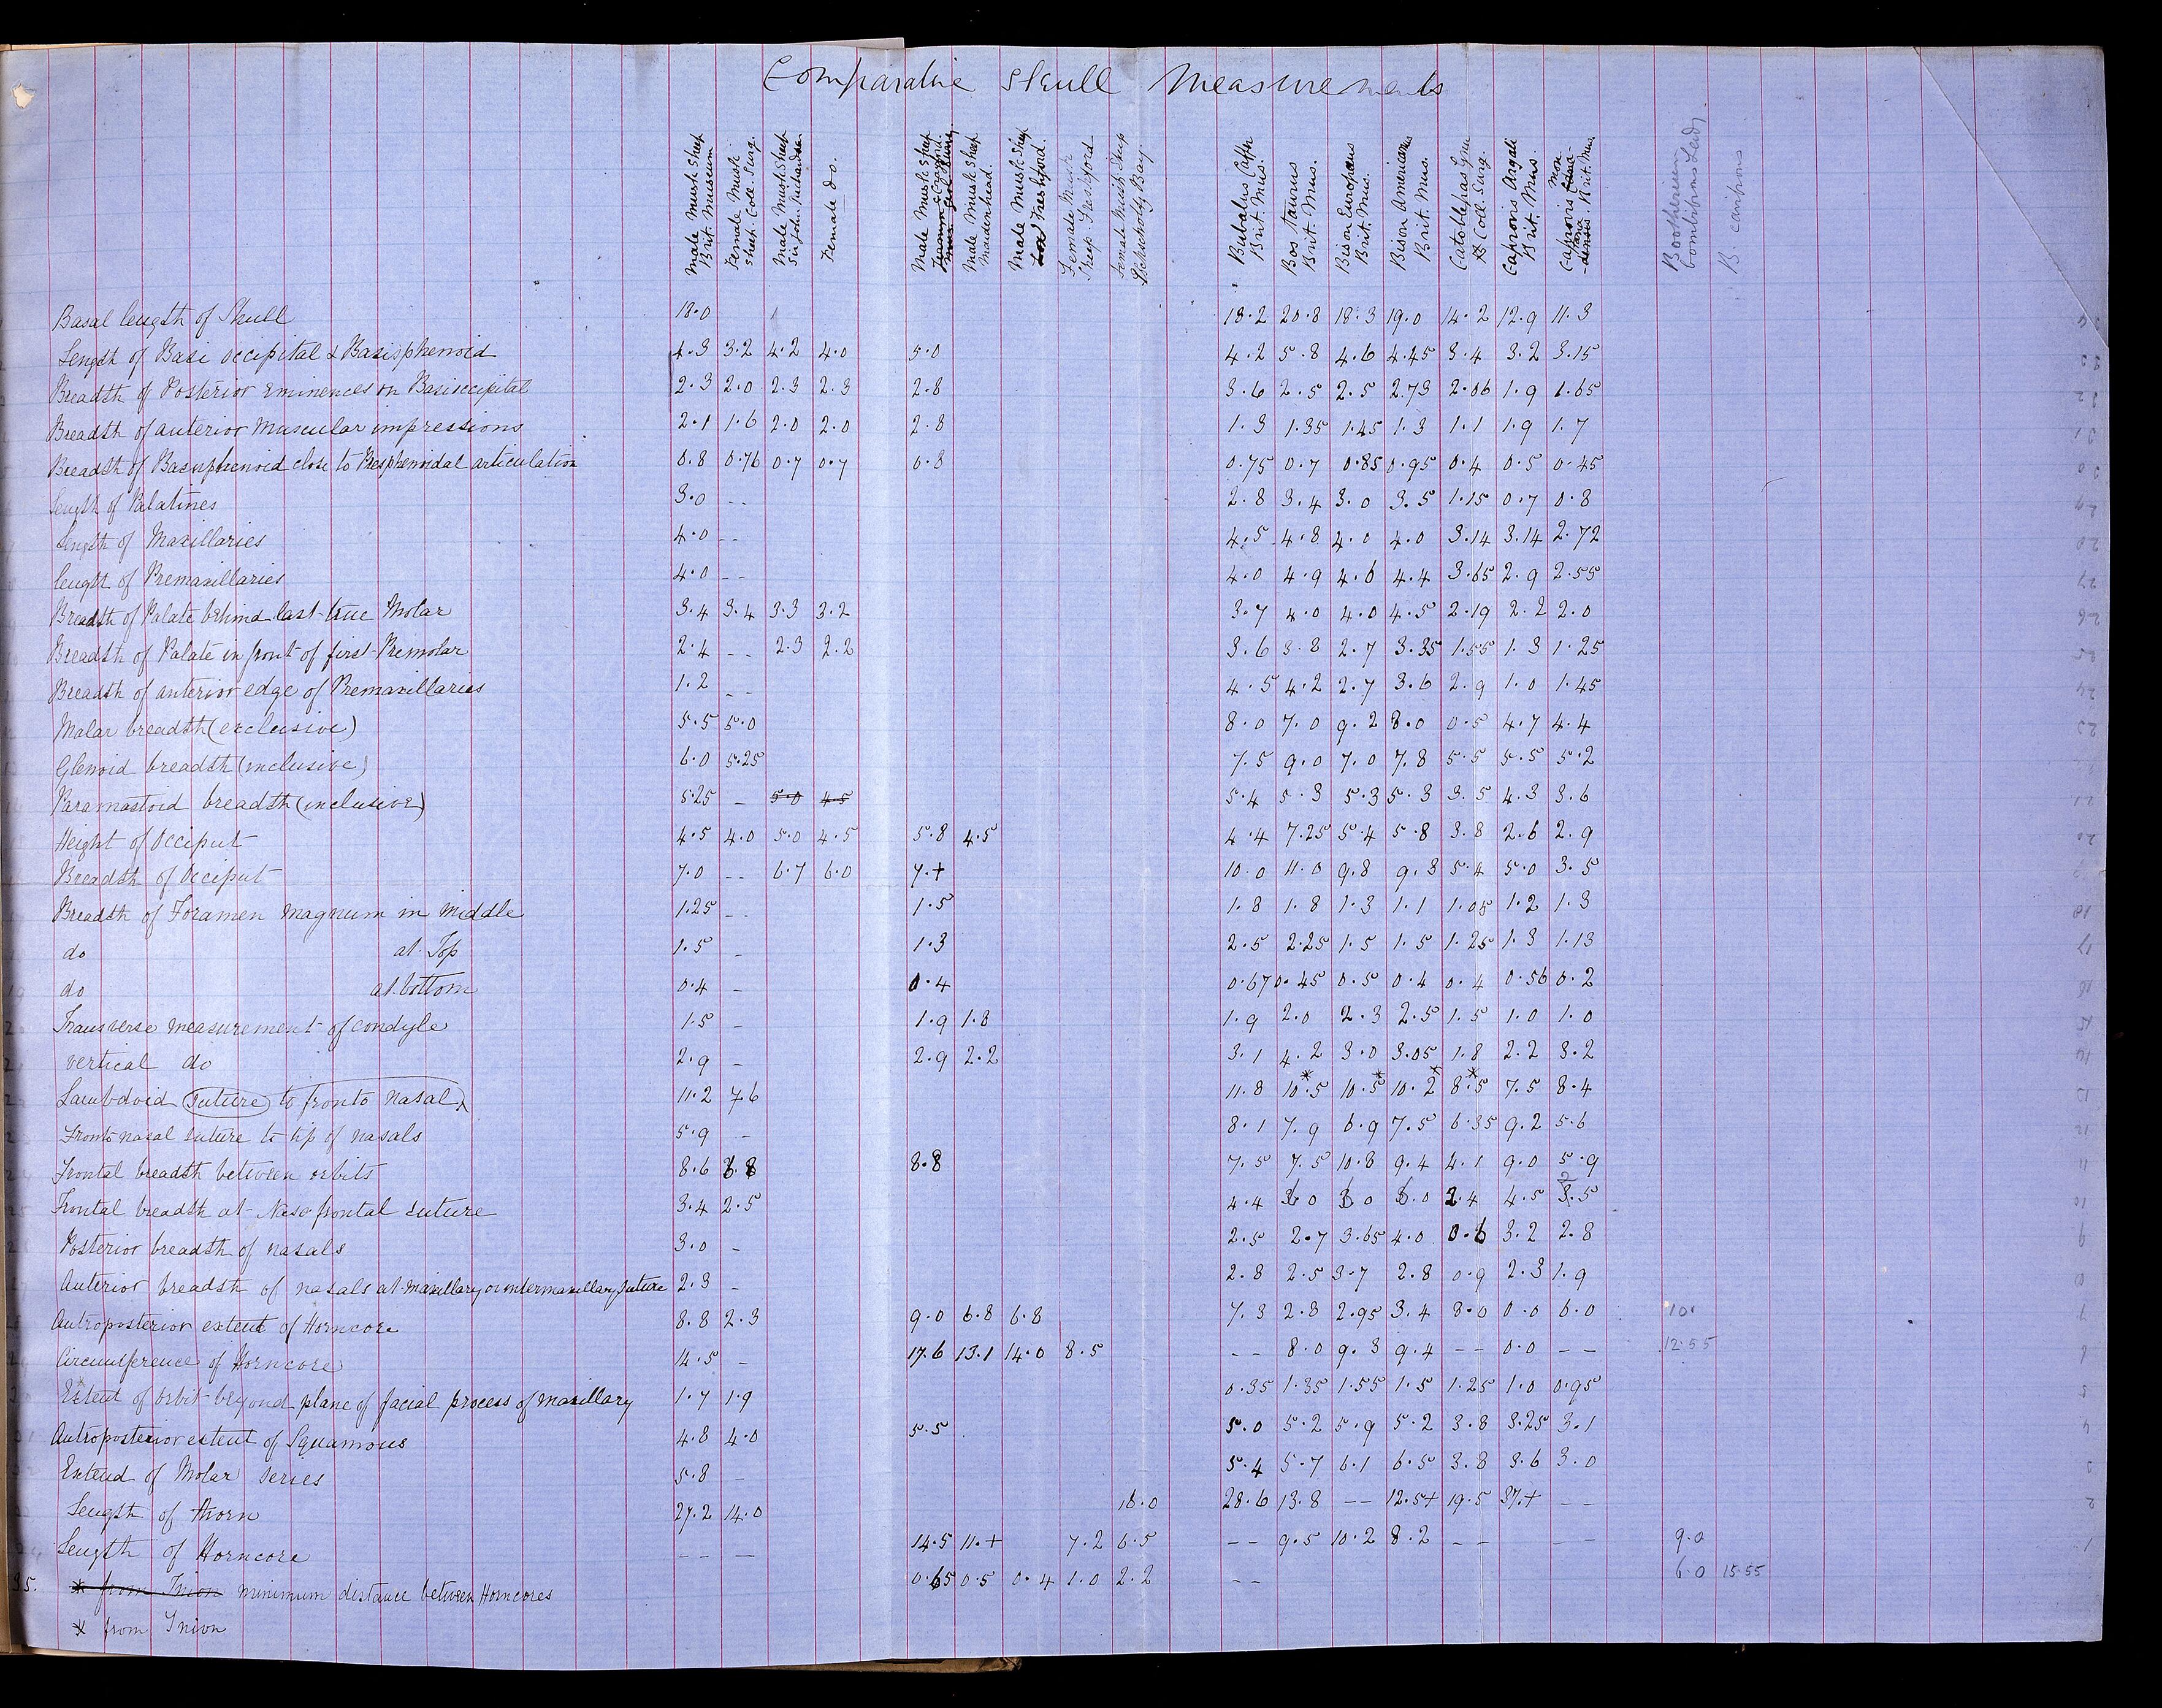 Comparative Skull Measurements
Male Musk Sheep Brit. Museum
Female Musk Sheep. Coll. Surg.
Male Musk Sheep Sir John Richardson
Female do.
Male Musk Sheep Crayford.
Male Musk Sheep Maidenhead.
Male Musk Sheep Freshford.
Female Musk Sheep. Freshford
Female Musk Sheep Escholtz Bay.
Bubalus Caffir Brit. Mus.
Bos taurus Brit. Mus.
Bison Europaeus Brit. Mus.
Bison Americanus Brit. Mus.
Catoblepas Gnu Coll. Surg.
Caprovis Argali Brit. Mus.
Caprovis Mon-tana Brit. Mus.
Bootherium bombifrons Leidy
B. cavifrons
Basal length of Skull 18.0 18.2 20.8 18.3 19.0 14.2 12.9 11.3
Length of Basi occipital & Basisphenoid 4.3 3.2 4.2 4.0 5.0 4.2 5.8 4.6 4.45 3.4 3.2 3.15
Breadth of Posterior eminences on Basioccipital 2.3 2.0 2.3 2.3 2.8 3.6 2.5 2.5 2.73 2.06 1.9 1.65
Breadth of anterior Muscular impressions 2.1 1.6 2.0 2.0 2.8 1.3 1.35 1.45 1.3 1.1 1.9 1.7
Breadth of Basisphenoid close to Presphenoidal articulation 0.8 0.76 0.7 0.7 0.8 0.75 0.7 0.85 0.95 0.4 0.5 0.45
Length of Palatines 3.0 -- 2.8 3.4 3.0 3.5 1.15 0.7 0.8
Length of Maxillaries 4.0 -- 4.5 4.8 4.0 4.0 3.14 3.14 2.72
Length of Premaxillaries 4.0 -- 4.0 4.9 4.6 4.4 3.65 2.9 2.55
Breadth of Palate behind last true Molar 3.4 3.4 3.3 3.2 3.7 4.0 4.0 4.5 2.19 2.2 2.0
Breadth of Palate in front of first Premolar 2.4 -- 2.3 2.2 3.6 3.8 2.7 3.35 1.55 1.3 1.25
Breadth of anterior edge of Premaxillaries 1.2 -- 4.5 4.2 2.7 3.6 2.9 1.0 1.45
Malar breadth (exclusive) 5.5 5.0 8.0 7.0 9.2 8.0 0.5 4.7 4.4
Glenoid breadth (inclusive) 6.0 5.25 7.5 9.0 7.0 7.8 5.5 5.5 5.2
Paramastoid breadth (inclusive) 5.25 - 5.0 4.5 5.4 5.3 5.3 5.3 3.5 4.3 3.6
Height of Occiput 4.5 4.0 5.0 4.5 5.8 4.5 4.4 7.25 5.4 5.8 3.8 2.6 2.9
Breadth of Occiput 7.0 -- 6.7 6.0 7.+ 10.0 11.0 9.8 9.3 5.4 5.0 3.5
Breadth of Foramen Magnum in middle 1.25 -- 1.5 1.8 1.8 1.3 1.1 1.05 1.2 1.3
do at Top 1.5 - 1.3 2.5 2.25 1.5 1.5 1.25 1.3 1.13
do at bottom 0.4 - 0.4 0.67 0.45 0.5 0.4 0.4 0.56 0.2
Transverse measurement of condyle 1.5 - 1.9 1.8 1.9 2.0 2.3 2.5 1.5 1.0 1.0
vertical do 2.9 - 2.9 2.2 3.1 4.2 3.0 3.05 1.8 2.2 3.2
Lambdoid suture to fronto nasal 11.2 7.6 11.8 10.5* 10.5* 10.2* 8.5* 7.5 8.4
Fronto nasal suture to tip of nasals 5.9 - 8.1 7.9 6.9 7.5 6.35 9.2 5.6
Frontal breadth between orbits 8.6 6.8 8.8 7.5 7.5 10.8 9.4 4.1 9.0 5.9
Frontal breadth at Naso frontal suture 3.4 2.5 4.4 2.4 4.5
Posterior breadth of nasals 3.0 - 2.5 2.7 3.65 4.0 0.6 3.2 2.8
Anterior breadth of nasals at maxillary or intermaxillary suture 2.3 - 2.8 2.5 3.7 2.8 0.9 2.3 1.9
Antroposterior extent of Horncore 8.8 2.3 9.0 6.8 6.8 7.3 2.8 2.95 3.4 8.0 0.0 6.0 10.
Circumference of Horncore 14.5 - 17.6 13.1 14.0 8.5 -- 8.0 9.3 9.4 -- 0.0 -- 12.55
Extent of orbit beyond plane of facial process of maxillary 1.7 1.9 0.35 1.35 1.55 1.5 1.25 1.0 0.95
Antroposterior extent of Squamous 4.8 4.0 5.5 5.0 5.2 5.9 5.2 3.8 3.25 3.1
Extend of Molar series 5.8 - 5.4 5.7 6.1 6.5 3.8 3.6 3.0
Length of Horn 27.2 14.0 16.0 28.6 13.8 -- 12.5+ 19.5 37.+ --
Length of Horncore -- -- 14.5 11.+ 7.2 6.5 -- 9.5 10.2 8.2 -- -- 9.0
35. * from Inion minimum distance between Horncores 0.65 0.5 0.4 1.0 2.2 -- 6.0 15.55
* from Inion